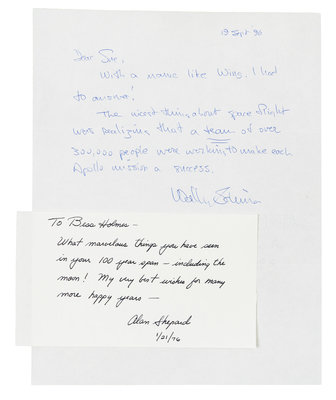 19 Sept 96
Dear Sue,
With a name like Wing, I had
to answer!
The nicest thing about space flight
was realizing that a team of over
300,000 people were working to make each
Apollo mission a success.
Wally Schirra
To Bess Holmes —
What marvelous things you have seen
in your 100 year span — including the
moon! My very best wishes for many
more happy years —
Alan Shepard
1/21/76